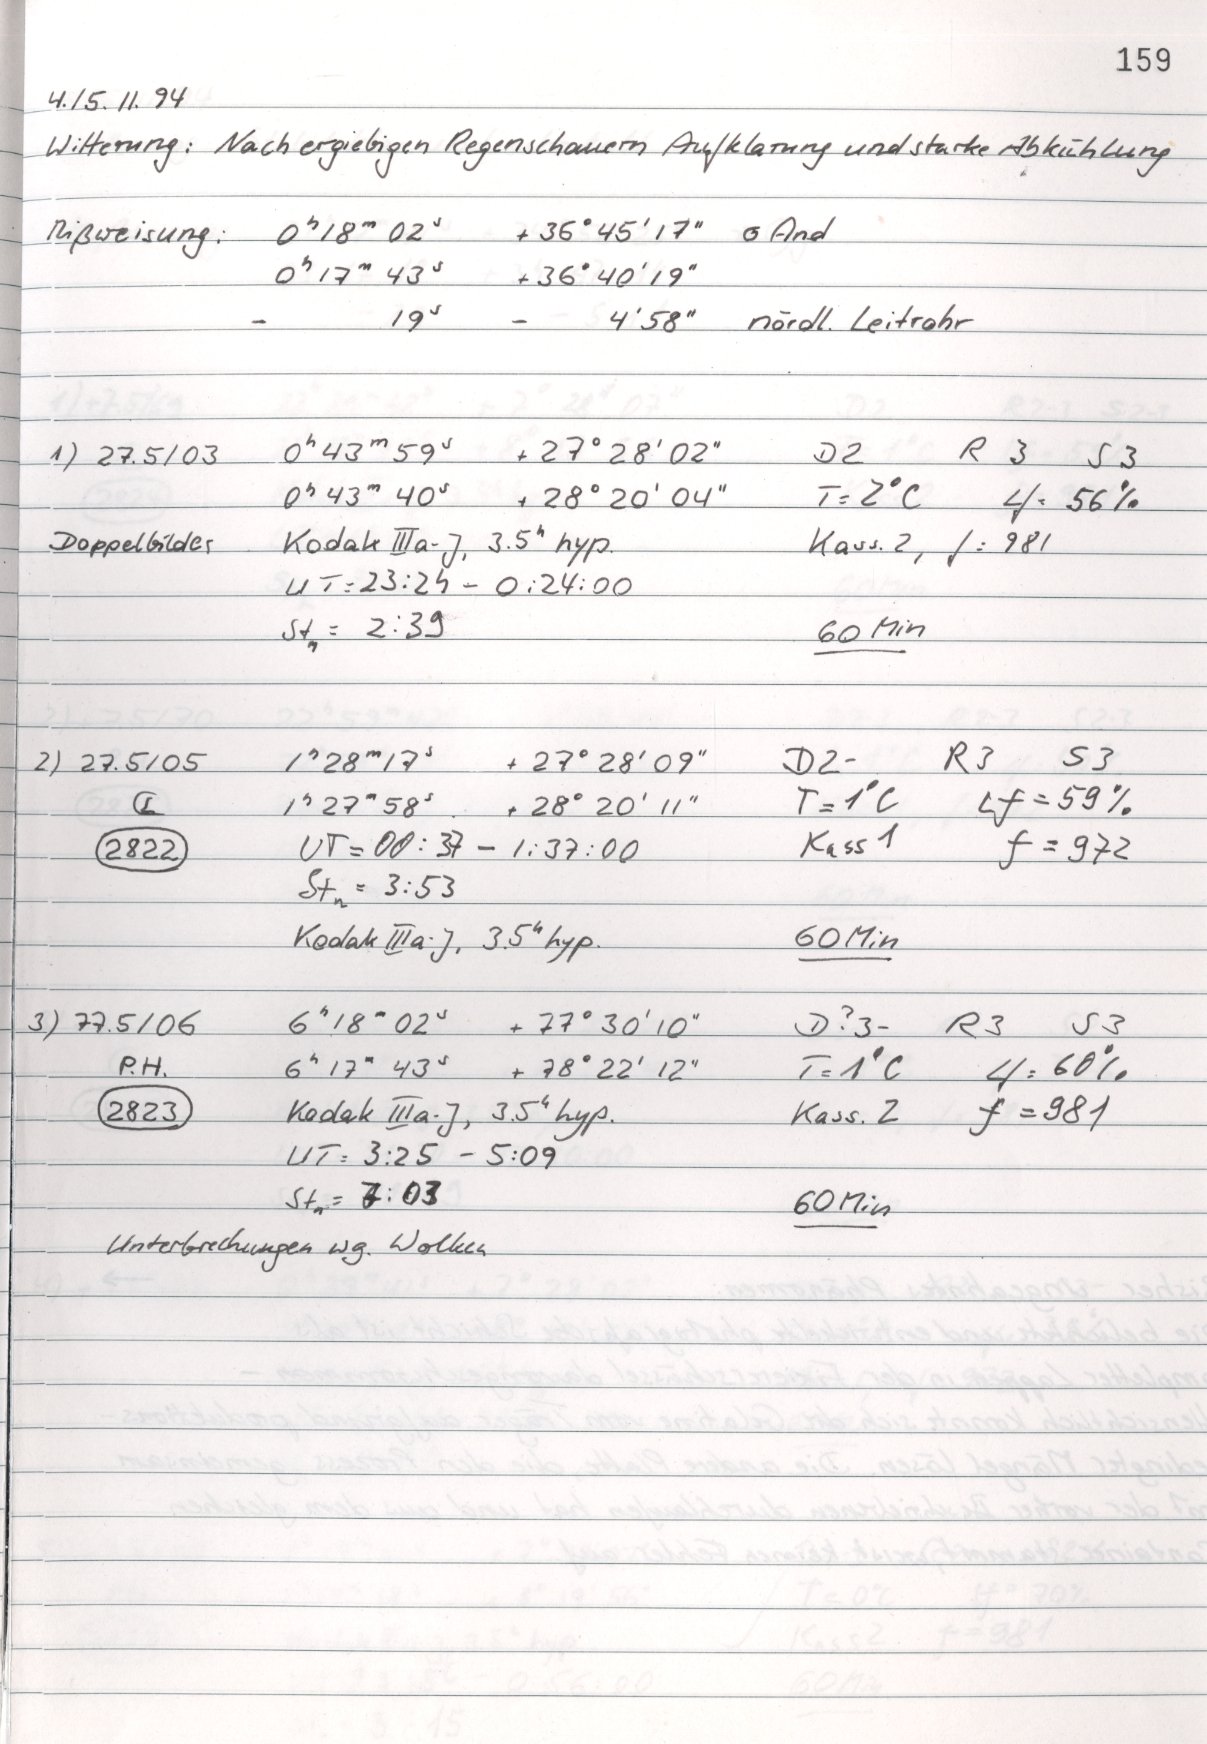 159
4./5. 11. 94
Witterung: Nach ergiebigen Regenschauern Aufklarung und starke Abkühlung
Mißweisung: 0ʰ18ᵐ 02ˢ +36°45'17" σ And
0ʰ17ᵐ 43ˢ +36°40'19"
- 19ˢ - 4'58" nördl. Leitrohr
1) 27.5/03 0ʰ43ᵐ59ˢ +27°28'02" D2 R 3 S3
0ʰ43ᵐ40ˢ +28°20'04" T=2°C Lf= 56%
Doppelbilder Kodak IIIa-J, 3.5ʰ hyp. Kass. 2, f= 981
UT=23:24 - 0:24:00
Stₙ = 2:39 60 Min
2) 27.5/05 1ʰ28ᵐ17ˢ +27°28'09" D2- R3 S3
1ʰ27ᵐ58ˢ +28°20'11" T=1°C Lf=59%
2822 UT=00:37 - 1:37:00 Kass 1 f=972
Stₙ = 3:53
Kodak IIIa-J, 3.5ʰ hyp. 60 Min
3) 77.5/06 6ʰ18ᵐ02ˢ +77°30'10" D?3- R3 S3
P.H. 6ʰ17ᵐ43ˢ +78°22'12" T=1°C Lf= 60%
2823 Kodak IIIa-J, 3.5ʰ hyp. Kass. 2 f=981
UT= 3:25 - 5:09
Stₙ = 7:03 60 Min
Unterbrechungen wg. Wolken